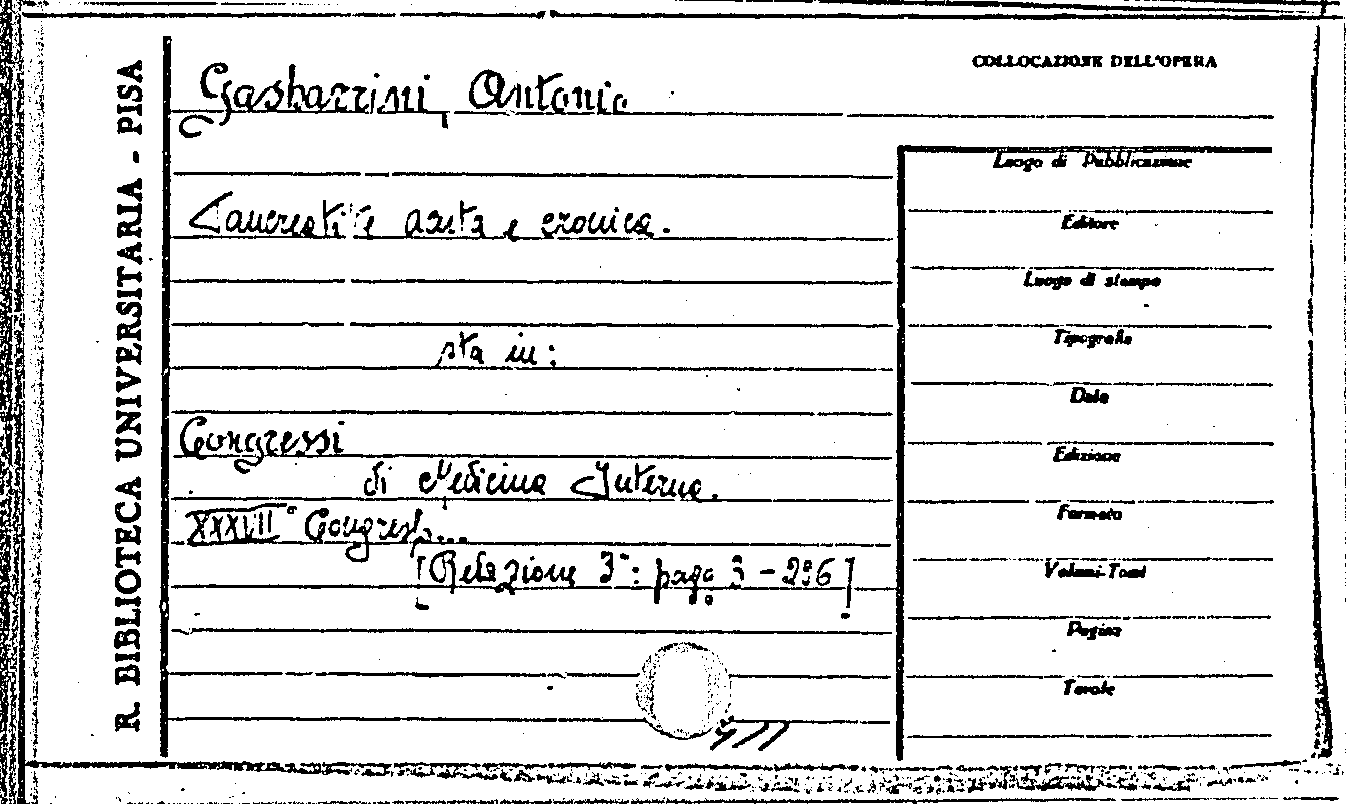 R. BIBLIOTECA UNIVERSITARIA - PISA
COLLOCAZIONE DELL'OPERA
Gasbarrini, Antonio
Luogo di Pubblicazione
Editore
Luogo di stampa
Tipografia
Data
Edizione
Formato
Volumi-Tomi
Pagine
Tavole
acuta e cronica.
sta in:
Congressi
di Medicina Interna.
XXXVII° Congresso...
[Relazione 3ª: pagg 3 - 296]